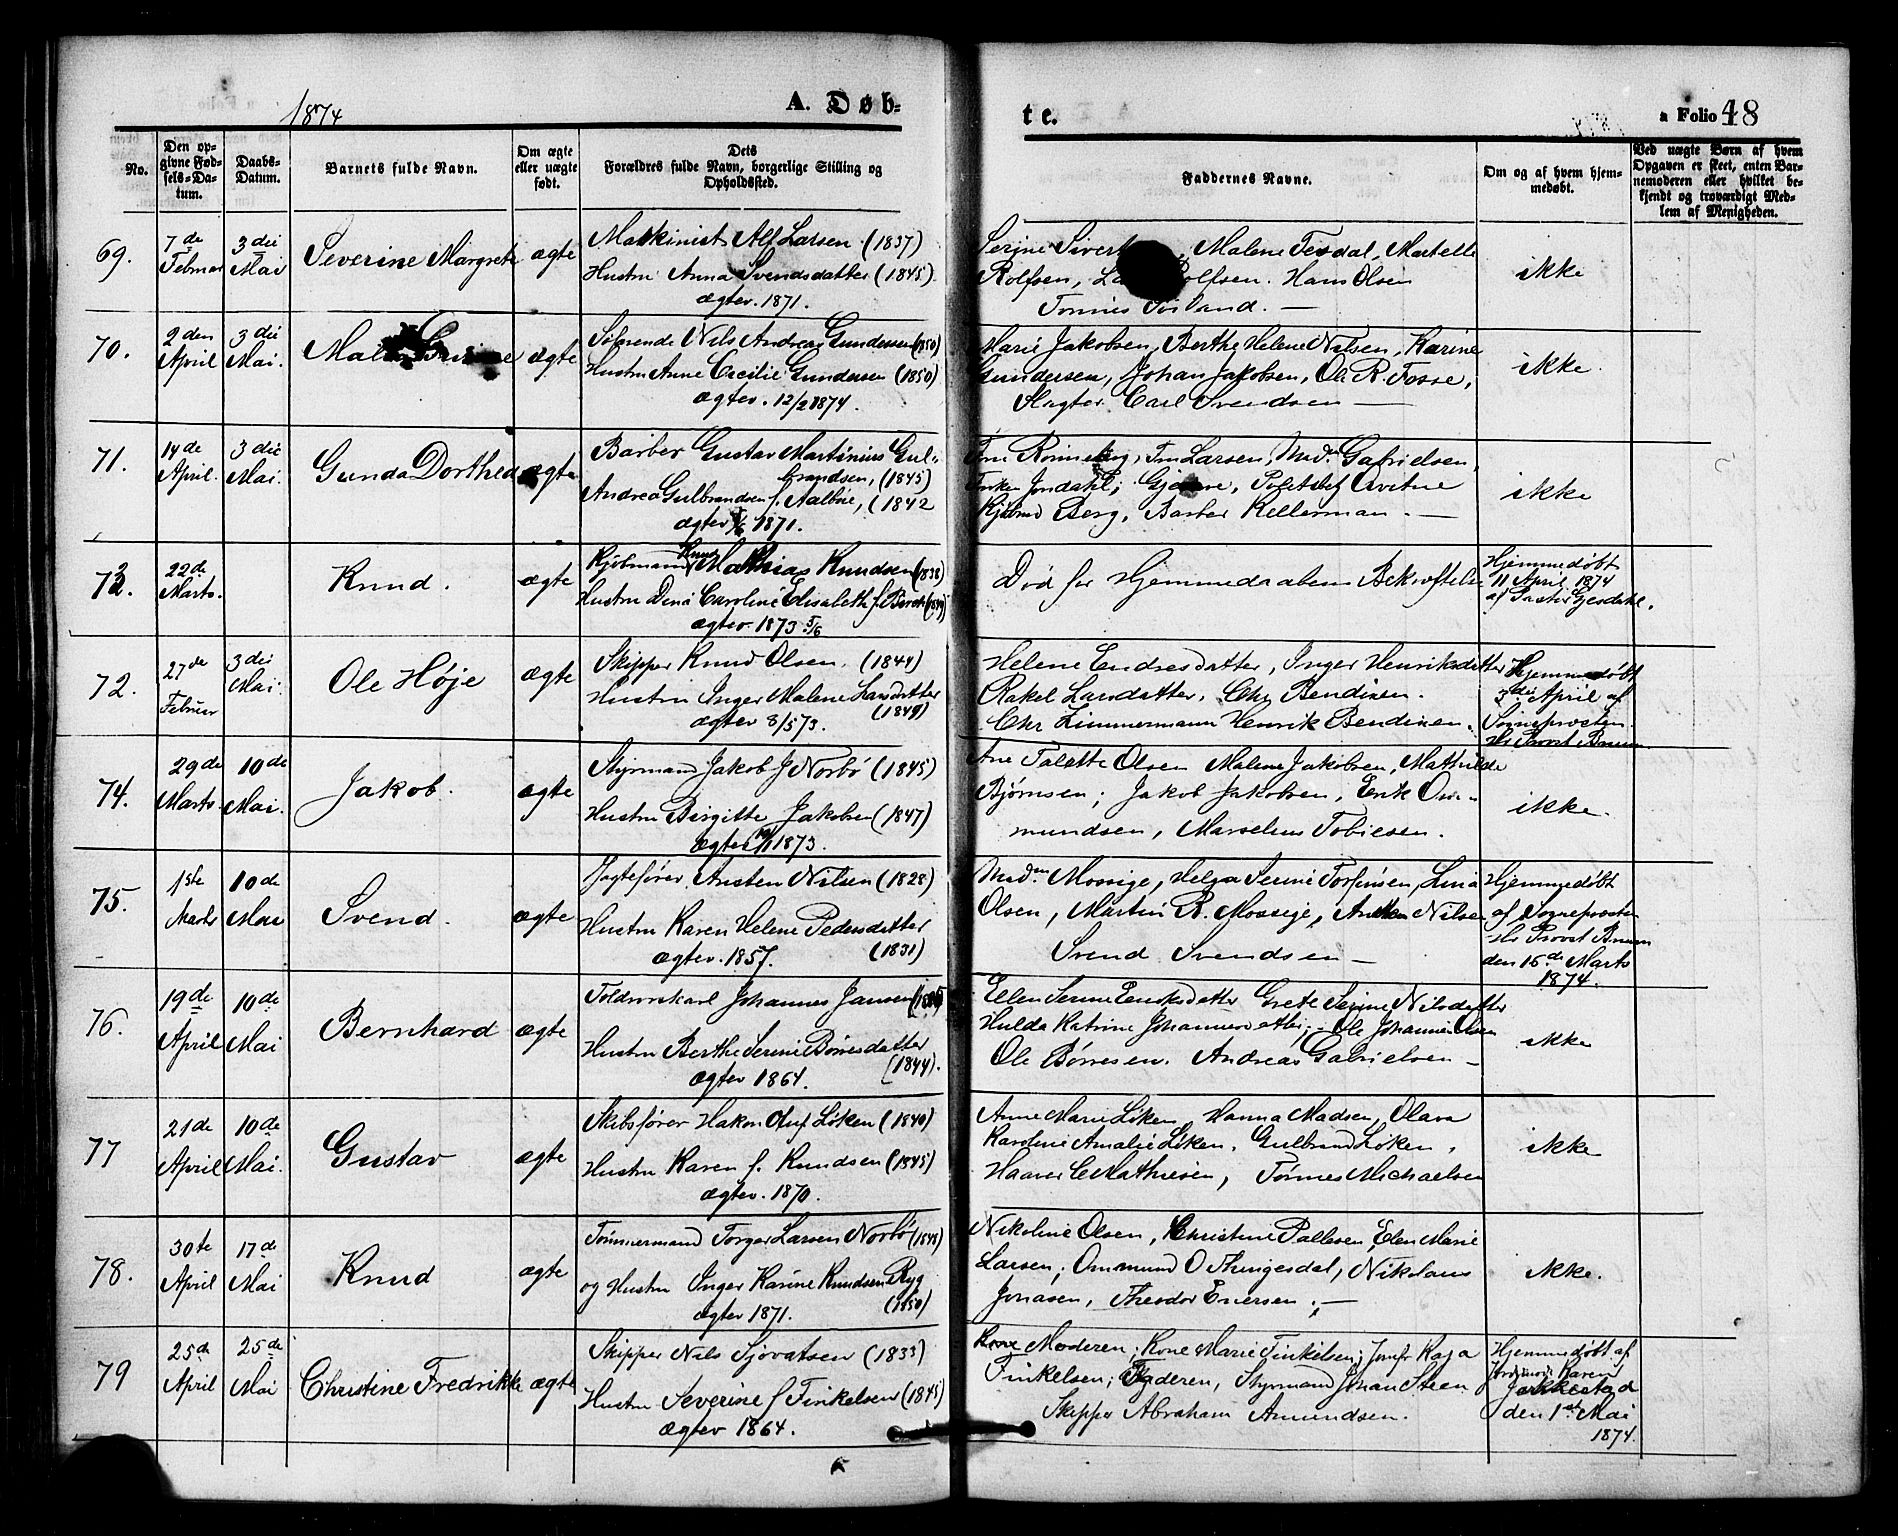 1874
A. Døb-
te.
a Folio 48
No.
Den op-
givne Fød-
sels-Da-
tum.
Daabs-
Datum.
Barnets fulde Navn.
Om ægte
eller uægte
født.
Dets
Forældres fulde Navn, borgerlige Stilling og
Opholdssted.
Faddernes Navne.
Om og af hvem hjem-
medøbt.
Ved uægte Børn af hvem
Opgaven er skeet, enten Bar-
nemoderen eller hvilket be-
kjendt og troværdigt Med-
lem af Menigheden.
69.
7de
Februar
3die
Mai
Severine Margrete
ægte
Maskinist Alf Larsen (1837)
Hustru Anna Svendsdatter (1845).
ægtev. 1871.
Serine Malene Tesdal, Martelle
Rolfsen, Rolfsen. Hans Olsen
Tønnes
ikke
70.
2den
April
3die
Mai.
ægte
Søfarende Nils Andreas Gundersen (1850)
Hustru Anne Cecilie Gundersen (1850)
ægtev. 12/2 1874.
Marie Jakobsen, Berthe Helene Nilsen, Karine
Gundersen, Johan Jakobsen, Ole R. Fosse,
Slagter Carl Svendsen —
ikke.
71.
14de
April.
3die
Mai.
Gunda Dorthea
ægte
Barber Gustav Martinius Gul-
brandsen, (1845)
Andrea Gulbrandsen f. (1842
ægtev 1871.
Fru Larsen, Madm Gabrielsen,
Jondahl; Politibtj
Kjøbmd Berg, Barber Kellerman. —
ikke
73.
22de
Marts.
Knud.
ægte
Kjøbmand Knud Mathias Knudsen (1838)
Hustru Dina Caroline Elisabeth f.
ægtev. 1873 5/6
Død før Hjemmedaabens Bekræftelse
Hjemmedøbt
11 April 1874
af Pastor Gjesdahl.
72.
27de
Februar
3die
Mai.
Ole Høje
ægte
Skipper Knud Olsen. (1844)
Hustru Inger Malene Larsdatter
(1849)
ægtev 8/5 73.
Helene Endresdatter, Inger Henriksdatter
Rakel Larsdatter, Chr Bendixen.
Chr Zimmermann Henrik Bendixen.
Hjemmedøbt
April af
Sogneprosten
Hr Provst Bruun.
74.
29de
Marts.
10de
Mai.
Jakob.
ægte
Styrmand Jakob J Norbø (1845)
Hustru Birgitte Jakobsen (1847)
ægtev 1873.
Ane Talette Olsen Malene Jakobsen, Mathilde
Bjørnsen; Jakob Jakobsen, Erik Om-
mundsen, Marselius Tobiesen.
ikke.
75.
1ste
Marts
10de
Mai
Svend.
ægte
Jagtefører Austen Nilsen (1828)
Hustru Karen Helene Pedersdatter
(1831)
ægtev. 1857.
Madm Mossige, Helga Serine Torjensen, Lina
Olsen, Martin R. Mossige, Nilsen
Svend Svendsen —
Hjemmedøbt
af Sogneprosten
Hr Provst Bruun
den 15de Marts
1874.
76.
19de
April
10de
Mai
Bernhard
ægte
Toldroerskarl Johannes Jansen
Hustru Berthe Serine Børresdatter
(1844).
ægtev 1864.
Ellen Serine Grete Serine Nilsdatter
Hulda Katrine Johannesdatter; Ole Johannes Olsen
Ole Børresen. Andreas Gabrielsen —
ikke
77
21de
April
10de
Mai.
Gustav
ægte
Skibsfører Hakon Oluf Løken (1840)
Hustru Karen f. Knudsen (1845)
ægtev. 1870.
Anne Marie Løken, Hanna Madsen, Olava
Karoline Amalie Løken, Gulbrand Løken,
C Mathiesen, Tønnes Michaelsen
ikke
78.
30te
April
17de
Mai
Knud
ægte
Tømmermand Torger Larsen Norbø (1848)
og Hustru Inger Karine Knudsen Ryg
(1850)
ægtev 1871.
Nikoline Olsen, Christine Pallesen, Elen Marie
Larsen; Ommund O Thingesdal, Nikolaus
Jonasen, Theodor Enersen. —
ikke.
79
25de
April
25de
Mai
Christine Fredrikke
ægte
Skipper Nils Sjovatsen (1833)
Hustru Severine f Finkelsen (1845)
ægtev 1864.
Moderen; Kone Marie Finkelsen; Jomfr Kaja
Finkelsen; Faderen, Styrmand Johan Steen
Skipper Abraham Amundsen.
Hjemmedøbt af
Jordmoder Karen
den 1ste Mai
1874.